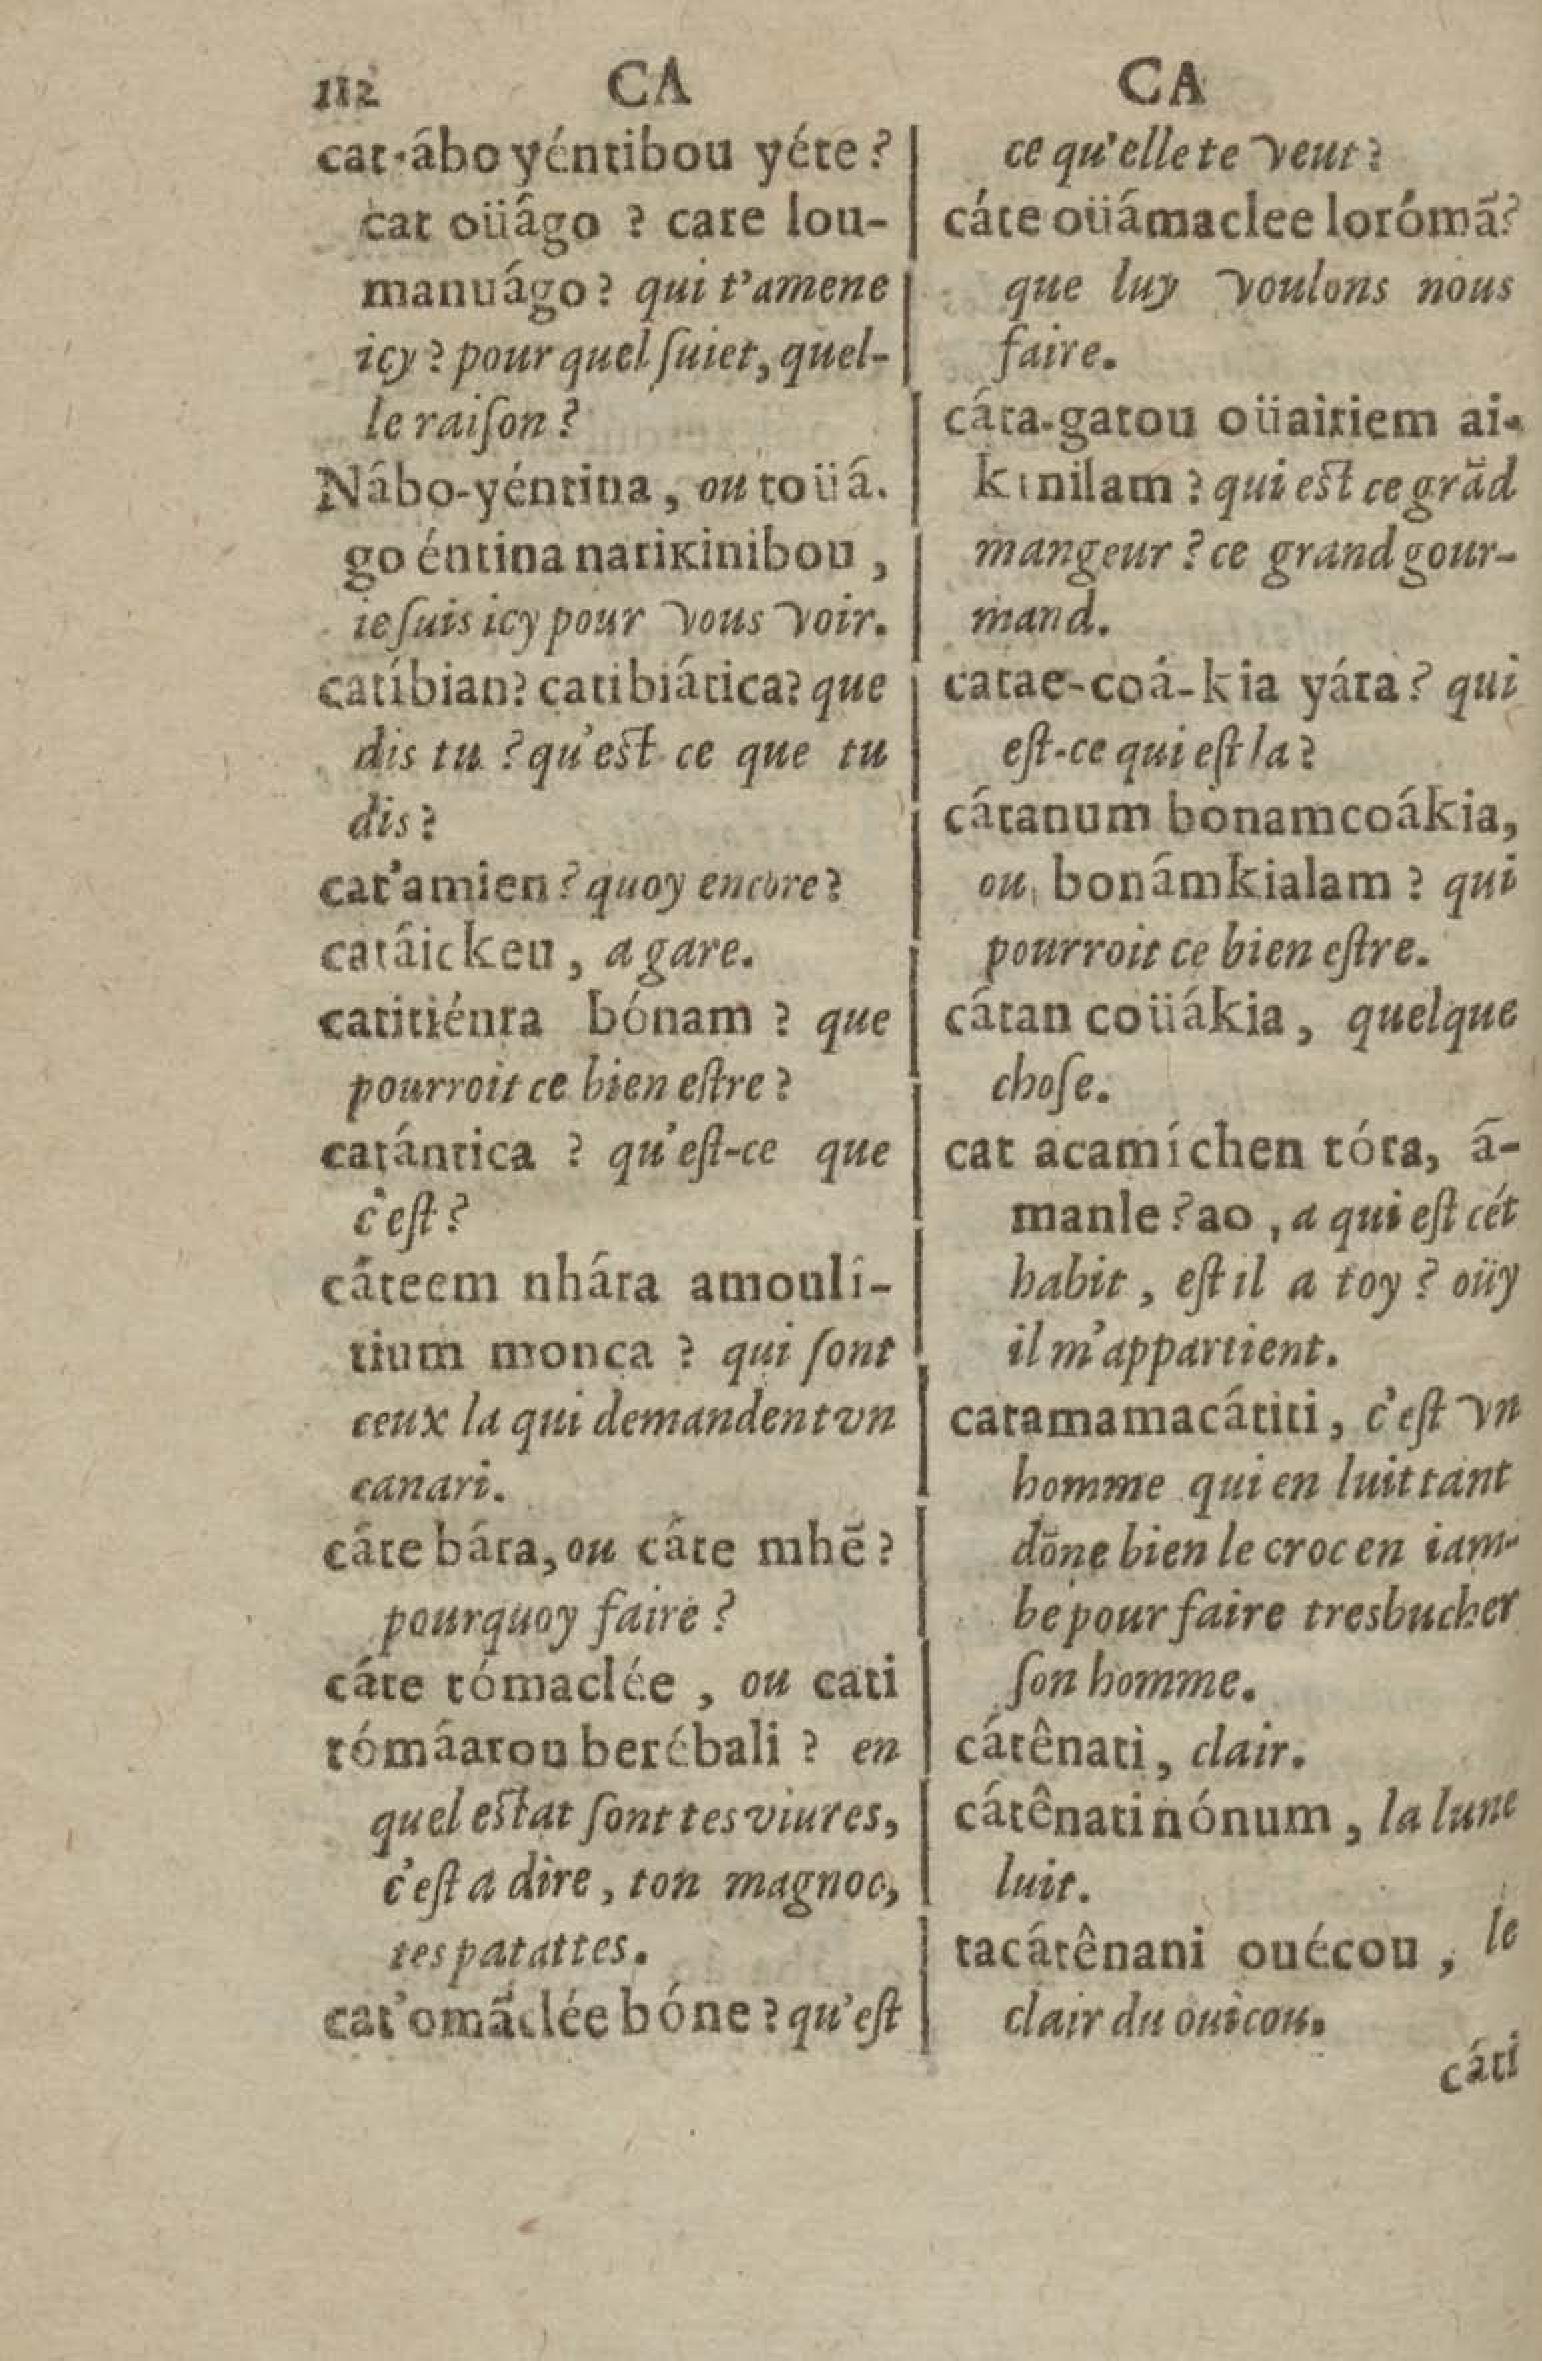 112 CA
cat-âbo yéntibou yéte?
cat oüâgo ? cate lou-
manuágo? qui t'amene
icy? pour quel ſuiet, quel-
le raiſon?
Nâbo-yéntina, ou toüá.
go éntina natiKinibou,
ie ſuis icy pour vous voir.
catíbian? catibiática? que
dis tu ? qu'est ce que tu
dis?
cat'amien? quoy encore?
catâickeu, a gare.
catitiénra bónam ? que
pourroit ce bien eſtre?
catántica ? qu'eſt-ce que
c'eſt?
câteem nhára amoulî-
tium monca ? qui ſont
ceux la qui demandent vn
canari.
câte bára, ou câte mhē?
pourquoy faire?
cáte tómaclée, ou cati
tómâatou berébali ? en
quel estat ſont tes viures,
c'eſt a dire, ton magnoc,
tes patattes.
cat'omáclée bóne? qu'eſt
CA
ce qu'elle te veut?
cáte oüámaclee lorómã?
que luy voulons nous
faire.
câta-gatou oüairiem ai-
kinilam? qui est ce grãd
mangeur? ce grand gour-
mand.
catae-coá-kia yára? qui
eſt-ce qui eſt la?
cátanum bónamcoákia,
ou bonâmkialam? qui
pourroit ce bien eſtre.
cátan coüákia, quelque
choſe.
cat acamíchen tóra, â-
manle? ao, a qui eſt cét
habit, eſt il a toy? oüy
il m'appartient.
catamamacátiti, c'eſt vn
homme qui en luittant
dõne bien le croc en iam-
be pour faire tresbucher
ſon homme.
cátênati, clair.
cátênatinónum, la lune
luit.
tacátênani ouécou, le
clair du oüicou.
cáti